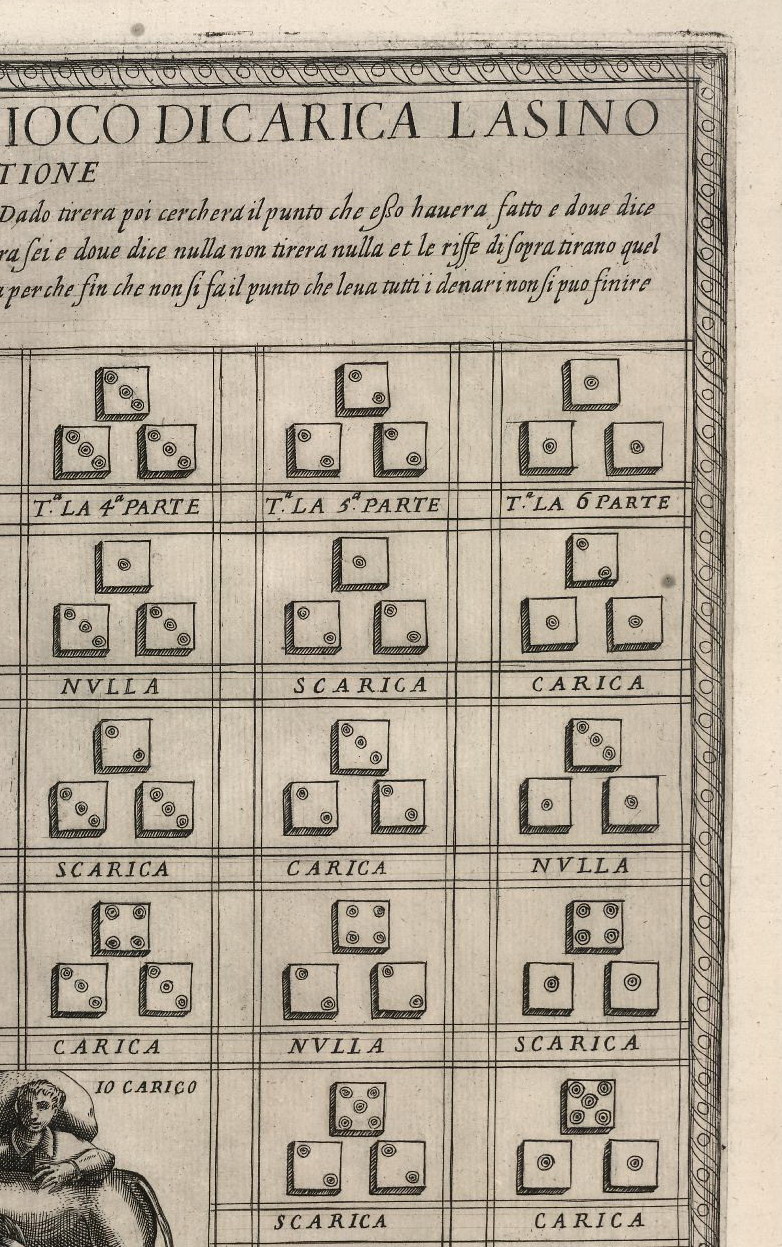 IOCO DI CARICA LASINO
TIONE
Dado tirera poi cercherà il punto che esso hauera fatto e doue dice
ra sei e doue dice nulla non tirera nulla et le riffe di sopra tirano quel
a perche fin che non si fa il punto che leua tutti i denari non si puo finire
T.ª LA 4ª PARTE T.ª LA 5.ª PARTE T.ª LA 6 PARTE
NVLLA SCARICA CARICA
SCARICA CARICA NVLLA
CARICA NVLLA SCARICA
IO CARICO
SCARICA CARICA